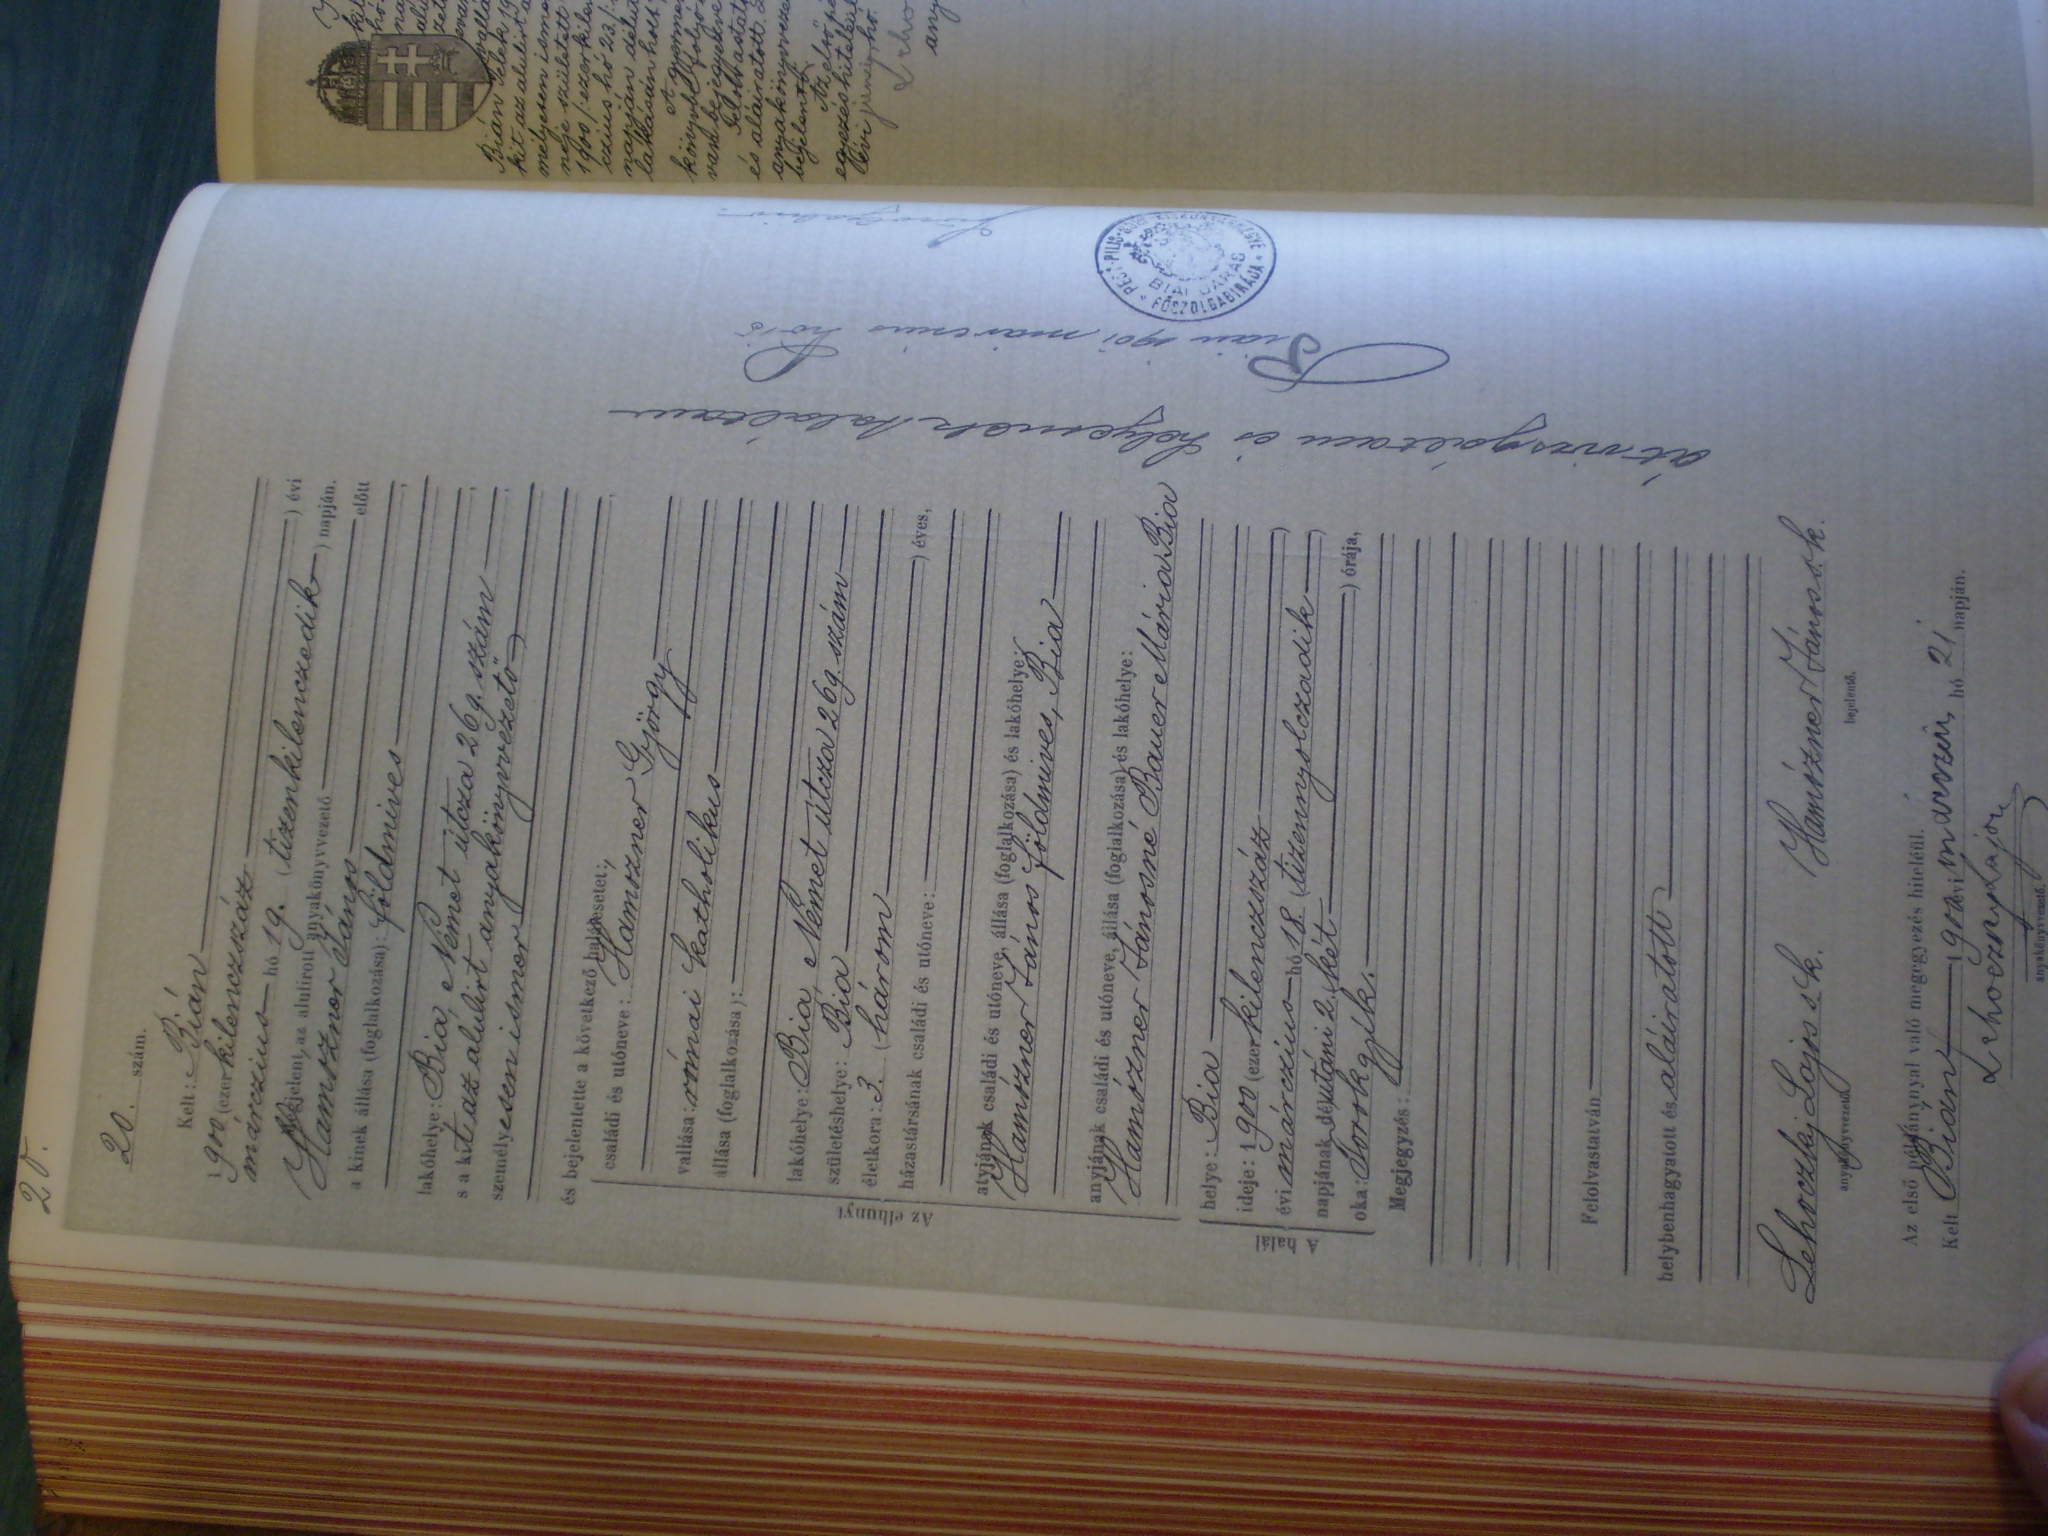 20.
20. szám.
Kelt: Bián
1900 (ezer kilenczszáz ) évi
márczius hó 19. (tizenkilenczedik ) napján.
Megjelent az alulirott anyakönyvvezető előtt
Hamszner János
a kinek állása (foglalkozása): földmives,
lakóhelye: Bia Német útcza 269. szám,
s a kit az alulirt anyakönyvvezető,
személyesen ismer
és bejelentette a következő halálesetet:
Az elhunyt
családi és utóneve: Hamszner György
vallása: római katholikus
állása (foglalkozása):
lakóhelye: Bia, Német útcza 269 szám
születéshelye: Bia
életkora: 3. (három ) éves,
házastársának családi és utóneve:
atyjának családi és utóneve, állása (foglalkozása) és lakóhelye:
Hamszner János földmives, Bia
anyjának családi és utóneve, állása (foglalkozása) és lakóhelye:
Hamszner Jánosné Bauer Mária Bia
A halál
helye: Bia
ideje: 1900 (ezer kilenczszáz )
évi márczius hó 18. (tizennyolczadik )
napjának délutáni 2. (két ) órája,
oka: torokgyík.
Megjegyzés:
Felolvastatván
helybenhagyatott és aláiratott
Lehoczky Lajos s.k. Hamszner János s.k.
anyakönyvvezető. bejelentő.
Az első példánynyal való megegyezés hiteléül.
Kelt Bián, 1900 évi márczius hó 21 napján.
Lehoczky Lajos
anyakönyvvezető.
átvizsgáltam és helyesnek találtam
Bián 1901 március hó
PEST-PILIS-SOLT-KISKUN VÁRMEGYE
BIAI JÁRÁS
FŐSZOLGABIRÁJA